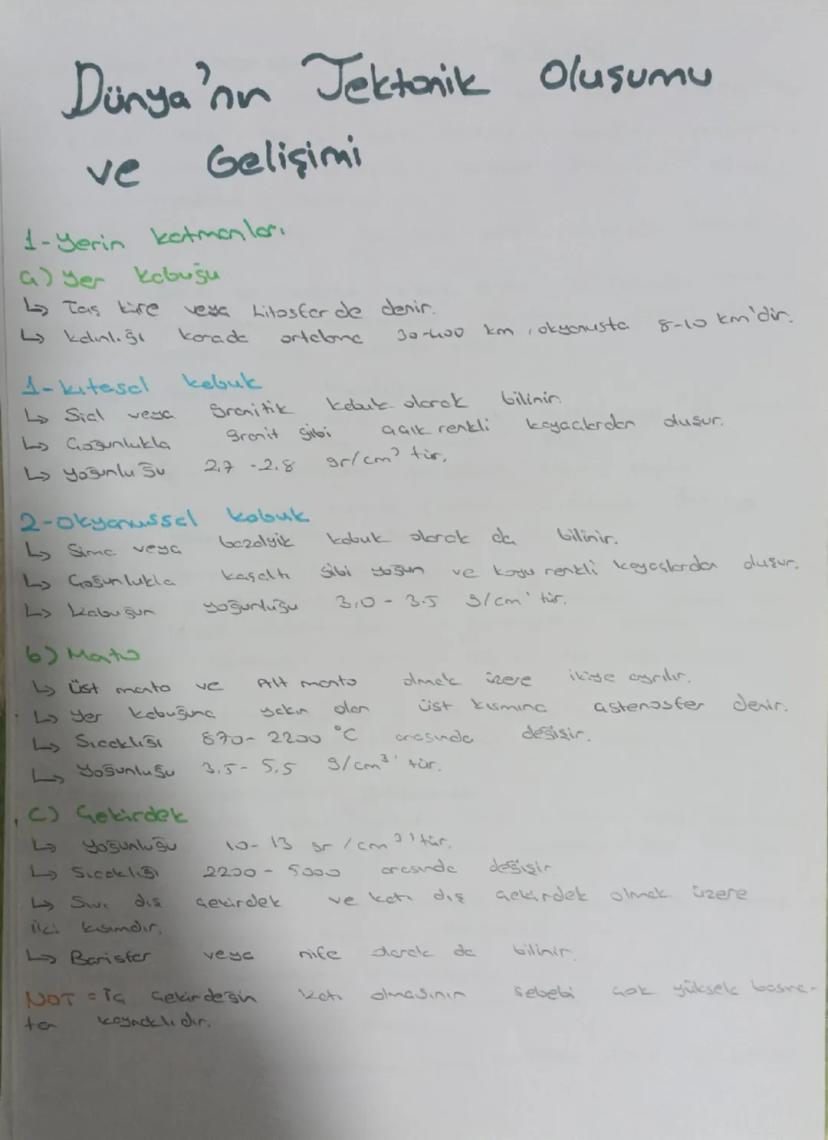 Dünya'nın Tektonik Oluşumu
ve Gelişimi
1-Yerin katmanları
a) Yer kabuğu
↳ Taş küre veya Litosfer de denir.
↳ Kalınlığı karada ortalama 30-400 km, okyanusta 8-10 km'dir.
1-Kıtasal kabuk
↳ Sial veya Granitik kabuk olarak bilinir.
↳ Çoğunlukla granit gibi açık renkli kayaçlardan oluşur.
↳ Yoğunluğu 2,7 -2,8 gr/cm³ tür.
2-Okyanussal kabuk
↳ Sima veya bazaltik kabuk olarak da bilinir.
↳ Çoğunlukla gibi yoğun ve koyu renkli kayaçlardan oluşur.
↳ Kabuğun yoğunluğu 3,0 - 3.5 g/cm' tür.
b) Mato
↳ Üst manto ve Alt manto olmak üzere ikiye ayrılır.
↳ Yer kabuğuna yakın olan üst kısmına astenosfer denir.
↳ Sıcaklığı 870- 2200 °C arasında değişir.
↳ Yoğunluğu 3,5- 5,5 g/cm³' tür.
c) Çekirdek
↳ Yoğunluğu 10- 13 gr /cm³'tür.
↳ Sıcaklığı 2200 - 5000 arasında değişir
↳ Sıvı dış çekirdek ve katı dış çekirdek olmak üzere
iki kısımdır.
↳ Barisfer veya nife olarak da bilinir.
NOT = İç çekirdeğin katı olmasının sebebi çok yüksek basınç-
tan kaynaklıdır.